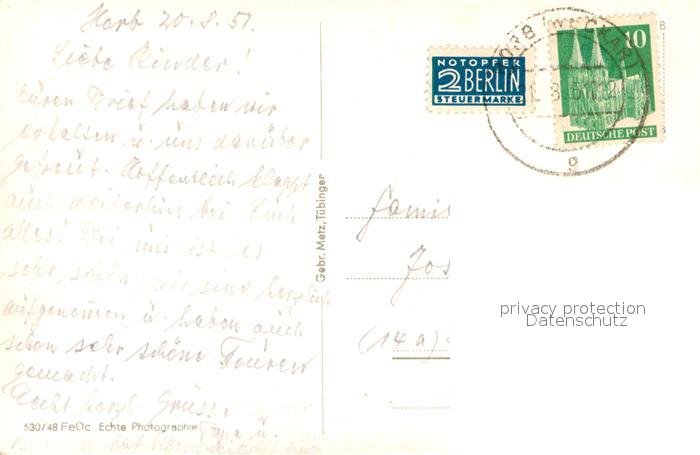 Horb 20.8.51.
Liebe Kinder!
Euren Brief haben wir
erhalten u. uns darüber
gefreut. Hoffentlich klappt
auch weiterhin bei Euch
alles! Bei uns ist es
sehr schön, wir sind herzlich
aufgenommen u. haben auch
schon sehr schöne Touren
gemacht.
Recht herzl. Grüsse
Papa u.
530/48 FeOc Echte Photographie
Gebr. Metz, Tübingen
NOTOPFER
2 BERLIN
STEUERMARKE
10
DEUTSCHE POST
(NECKAR)
g
B
Fami
Jos
(14a)
privacy protection
Datenschutz